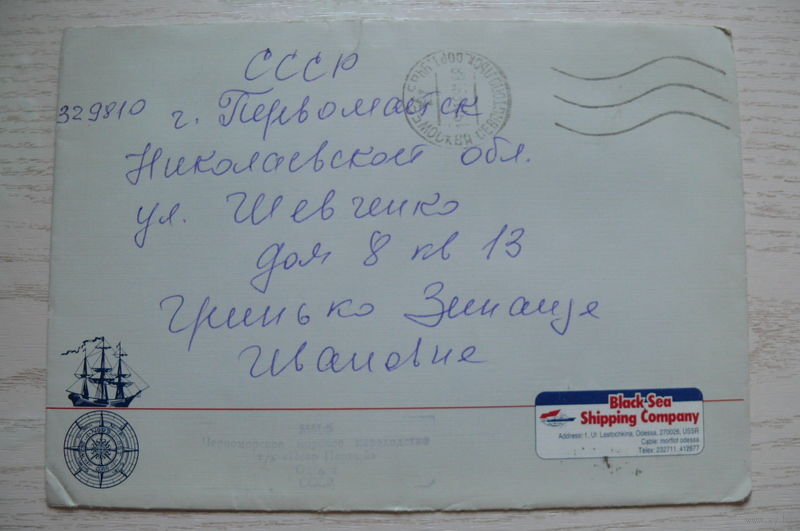 СССР
329810
г. Первомайск
Николаевской обл.
ул. Шевченко
дом 8 кв 13
Гринько Зинаиде
Ивановне
Black Sea
Shipping Company
Address: 1, Ul. Lastochkina, Odessa, 270026, USSR
Cable: morflot odessa
Telex: 232711, 412677
Черноморское морское пароходство
СССР